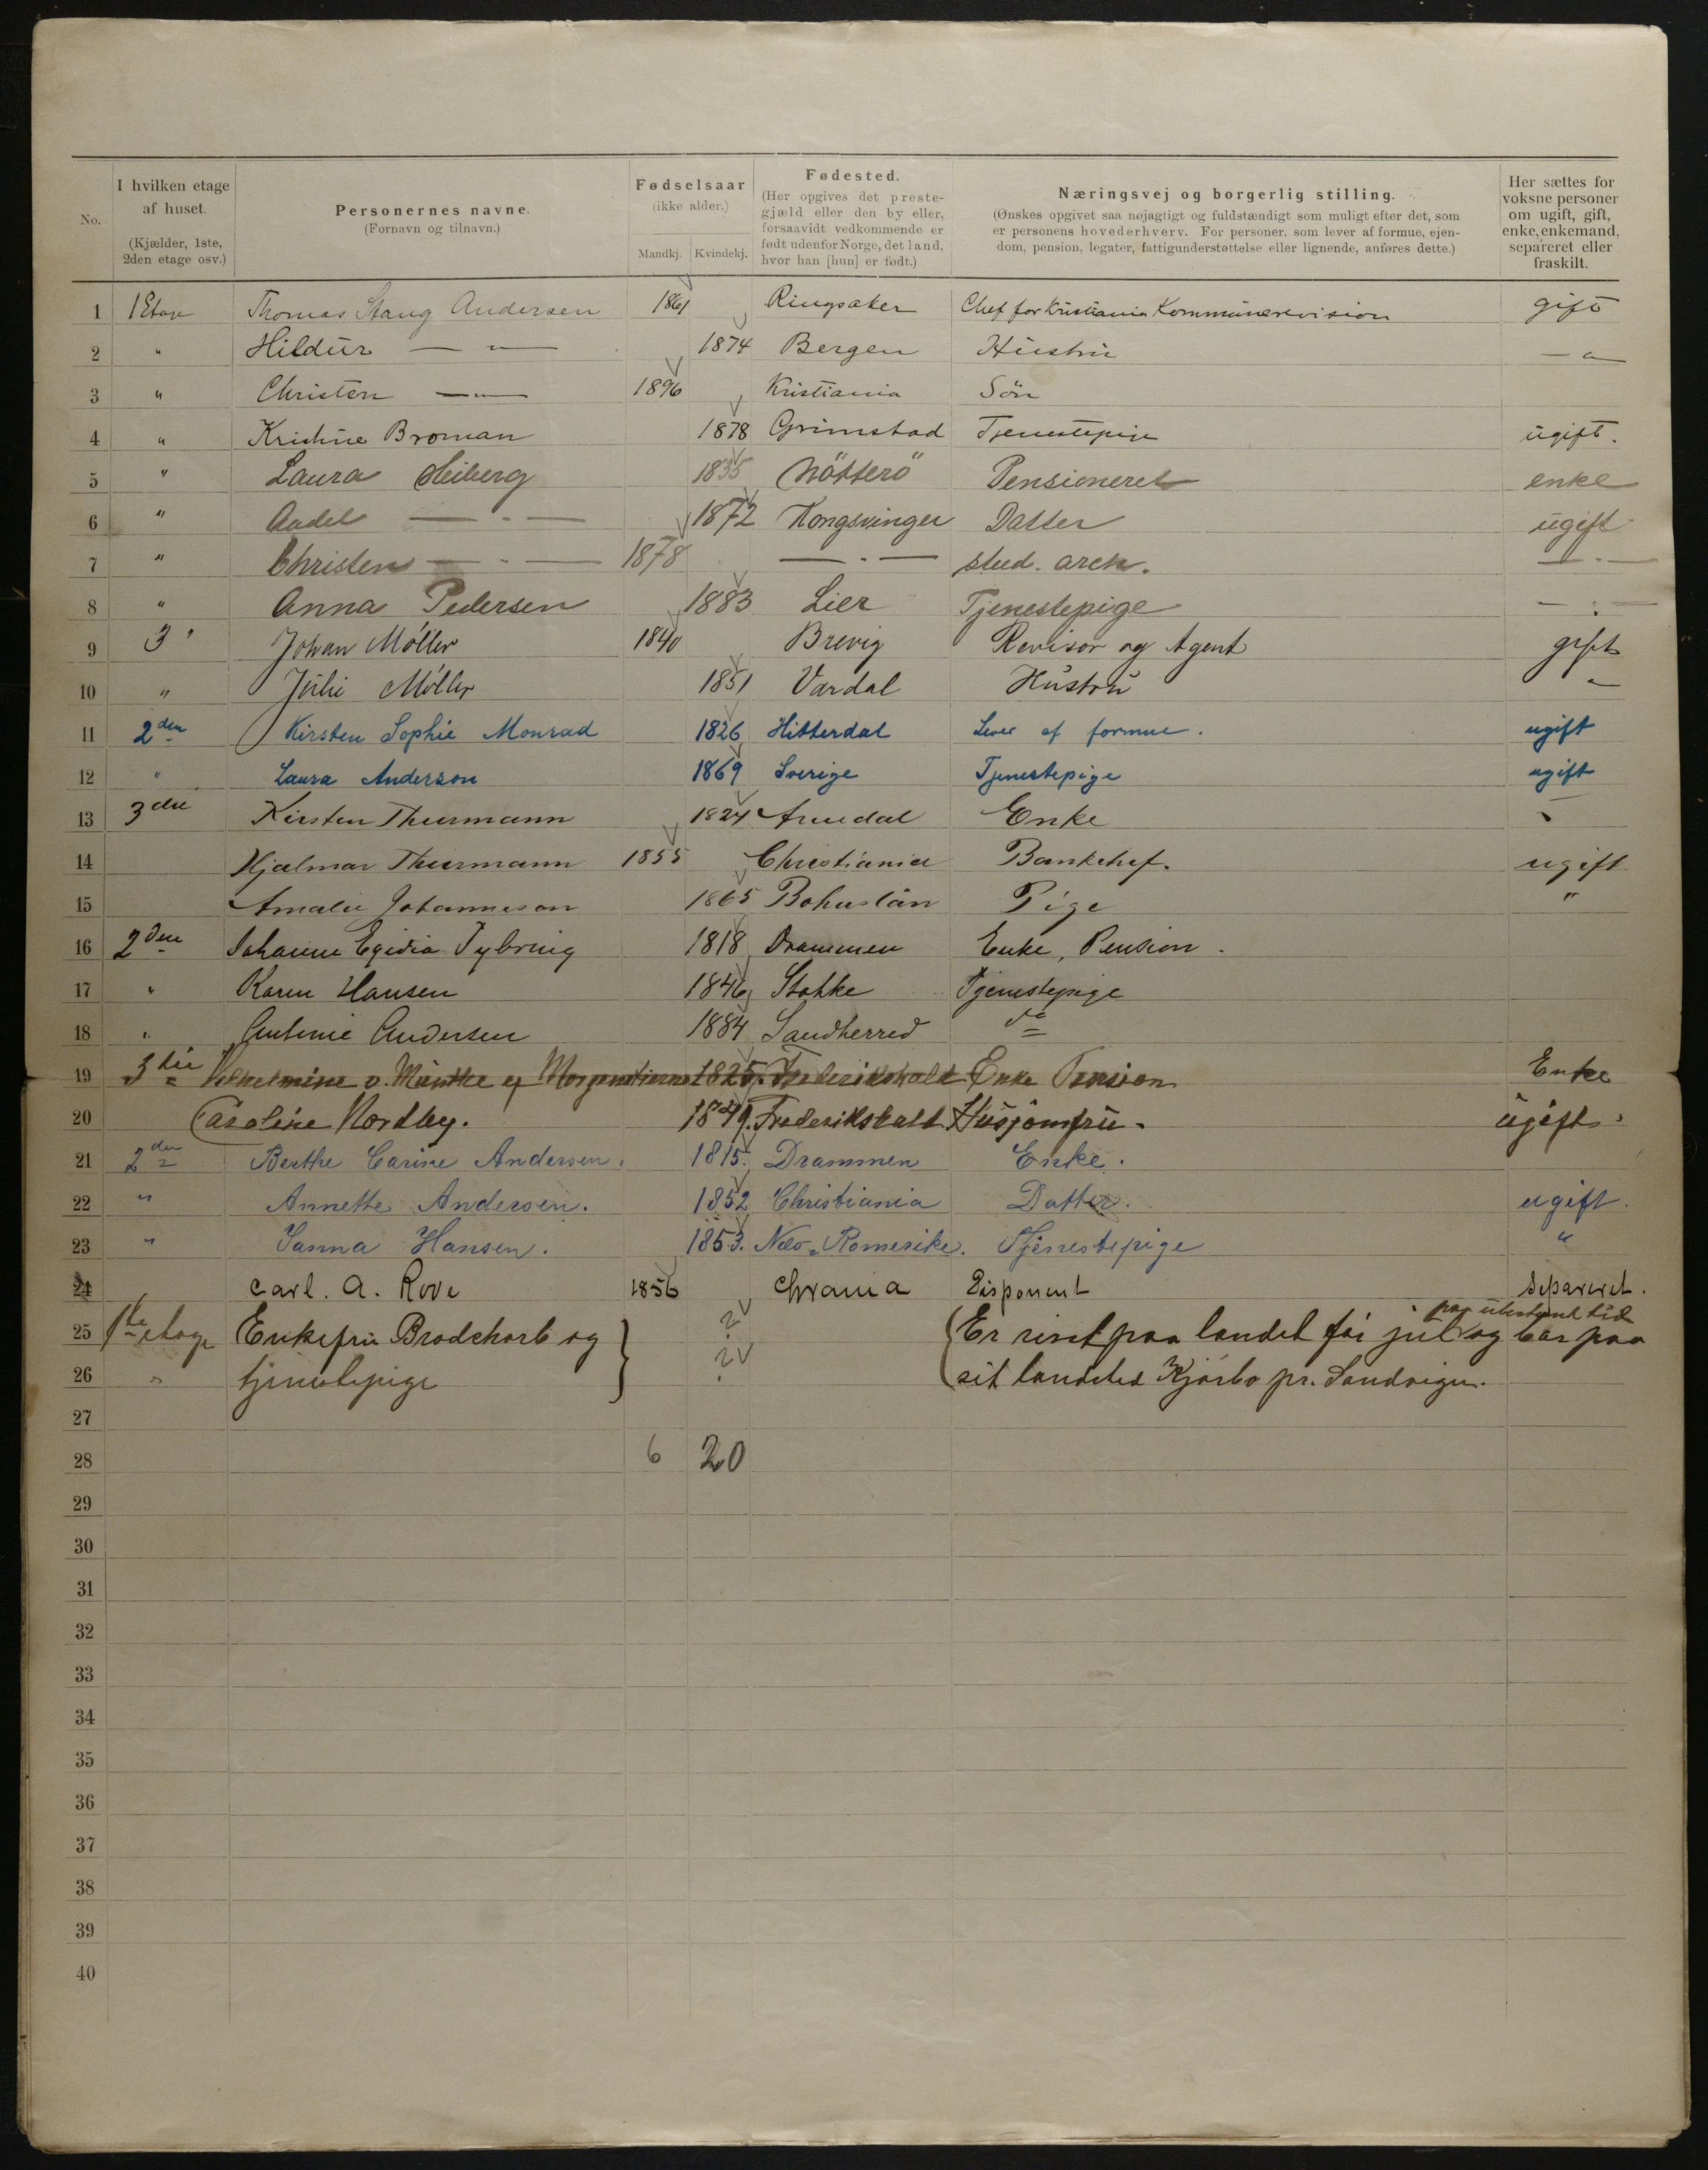 No. I hvilken etage af huset. (Kjælder, 1ste, 2den etage osv.) Personernes navne. (Fornavn og tilnavn.) Fødselsaar (ikke alder.) Mandkj. Kvindekj. Fødested. (Her opgives det prestegjæld eller den by eller, forsaavidt vedkommende er født udenfor Norge, det land, hvor han [hun] er født.) Næringsvej og borgerlig stilling. (Ønskes opgivet saa nøjagtigt og fuldstændigt som muligt efter det, som er personens hovederhverv. For personer, som lever af formue, ejendom, pension, legater, fattigunderstøttelse eller lignende, anføres dette.) Her sættes for voksne personer om ugift, gift, enke, enkemand, separeret eller fraskilt.
1 1 Etage Thomas Stang Andersen 1861 Ringsaker Chef for Kristiania Kommunerevision gift
2 " Hildur — " — 1874 Bergen Hustru — " —
3 " Christen — " — 1896 Kristiania Sön
4 " Kristine Broman 1878 Grimstad Tjenestepige ugift.
5 " Laura Heiberg 1835 Nötterö Pensioneret enke
6 " Aadel — " — 1872 Kongsvinger Datter ugift
7 " Christen — " — 1878 — " — stud. arch. — " —
8 " Anna Pedersen 1883 Lier Tjenestepige — " —
9 3 " Johan Møller 1840 Brevig Revisor og Agent gift
10 " Julie Møller 1851 Vardal Hustru "
11 2den Kirsten Sophie Monrad 1826 Hitterdal Lever af formue. ugift
12 " Laura Anderson 1869 Sverige Tjenestepige ugift
13 3die Kirsten Thurmann 1824 Arendal Enke
14 Hjalmar Thurmann 1855 Christiania Bankchef. ugift
15 Amalie Johanneson 1865 Bohuslän Pige "
16 2den Johanne Egidia Tybring 1818 Drammen Enke, Pension.
17 " Karen Hansen 1846 Stokke Tjenestepige
18 " Antonie Andersen 1884 Sandherred do
19 3die Vilhelmine v. Munthe af Morgenstierne 1825. Frederikshald Enke Pension Enke
20 Caroline Nordby. 1849. Frederikshald Husjomfru. ugift.
21 2den Berthe Carine Andersen. 1815. Drammen Enke.
22 " Annette Andersen. 1852 Christiania Datter. ugift.
23 " Sanna Hansen. 1853. Næs Romerike. Tjenestepige "
24 Carl. A. Rove 1856 Chrania Disponent Separeret.
25 1ste etage Enkefru Brodtkorb og ? Er reist paa landet før jul paa ubestemt tid og bor paa
26 " tjenestepige ? sit landsted Kjørbo pr. Sandvigen.
27
28 6 20
29
30
31
32
33
34
35
36
37
38
39
40